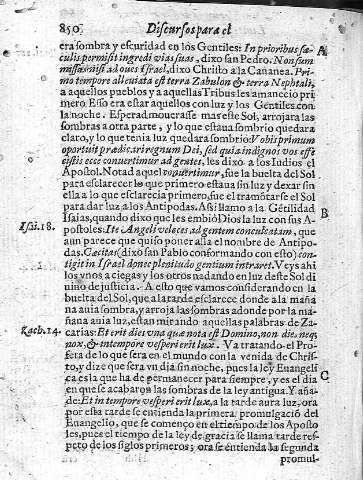 850. Discursos para el
era sombra y escuridad en los Gentiles: In prioribus sæ- A
culis permisit ingredi vias suas, dixo san Pedro. Non sum
missus nisi ad oues Israel, dixo Christo a la Cananea. Pri-
mo tempore alleuiata est terra Zabulon & terra Nephtali,
a aquellos pueblos y a aquellas Tribus les amanecio pri-
mero. Esso era estar aquellos con luz y los Gentiles con
la noche. Esperad, mouerasse mas este Sol, arrojara las
sombras a otra parte, y lo que estaua sombrio quedara
claro, y lo que tenia luz quedara sombrio: Vobis primum
oportuit prædicari regnum Dei, sed quia indignos vos esse
cistis ecce conuertimur ad gentes, les dixo a los Iudios el
Apostol. Notad aquel conuertimur, fue la buelta del Sol
para esclarecer lo que primero estaua sin luz y dexar sin
ella a lo que esclarecia primero, fue el tramõtarse el Sol
para dar luz a los Antipodas. Assi llamo a la Gẽtilidad
Isaias, quando dixo que les embiò Dios la luz con sus A- B
Isai. 18. postoles: Ite Angeli veloces ad gentem conculcatam, que
aun parece que quiso poner alli el nombre de Antipo-
das. Cæcitas (dixo san Pablo conformando con esto) con-
tigit in Israel donec plenitudo gentium intraret. Veys ahi
los vnos a ciegas y los otros nadando en luz deste Sol di
uino de justicia. A esto que vamos considerando en la
buelta del Sol, que a la tarde esclarece donde a la maña
na auia sombra, y arroja las sombras adonde por la ma-
ñana auia luz, estan mirando aquellas palabras de Za-
Zach. 14. carias: Et erit dies vna quæ nota est Domino, non die, neq;
nox, & in tempore vesperi erit lux. Va tratando el Pro-
feta de lo que sera en el mundo con la venida de Chris-
to, y dize que sera vn dia sin noche, pues la ley Euangeli
ca es la que ha de permanecer para siempre, y es el dia C
en que se acabaron las sombras de la ley antigua. Y aña-
de: Et in tempore vesperi erit lux, a la tarde aura luz, ora
por esta tarde se entienda la primera promulgació del
Euangelio, que se començo en el tiempo de los Aposto
les, pues el tiempo de la ley de gracia se llama tarde res-
peto de los siglos primeros; ora se entienda la segunda
promul-